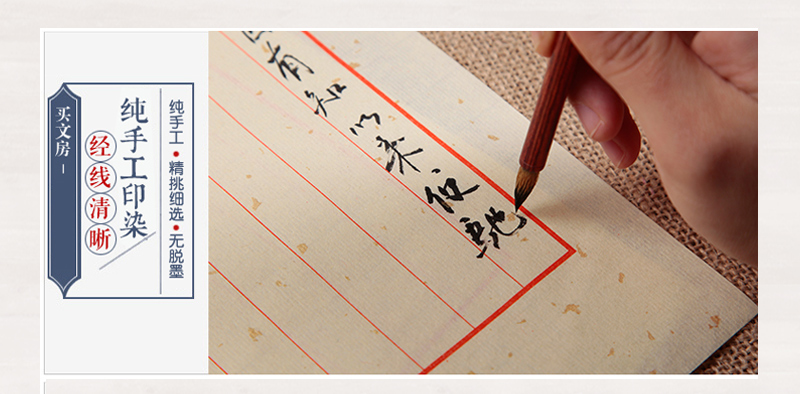 买文房
纯手工印染
经线清晰
纯手工•精挑细选•无脱墨
有知以来便